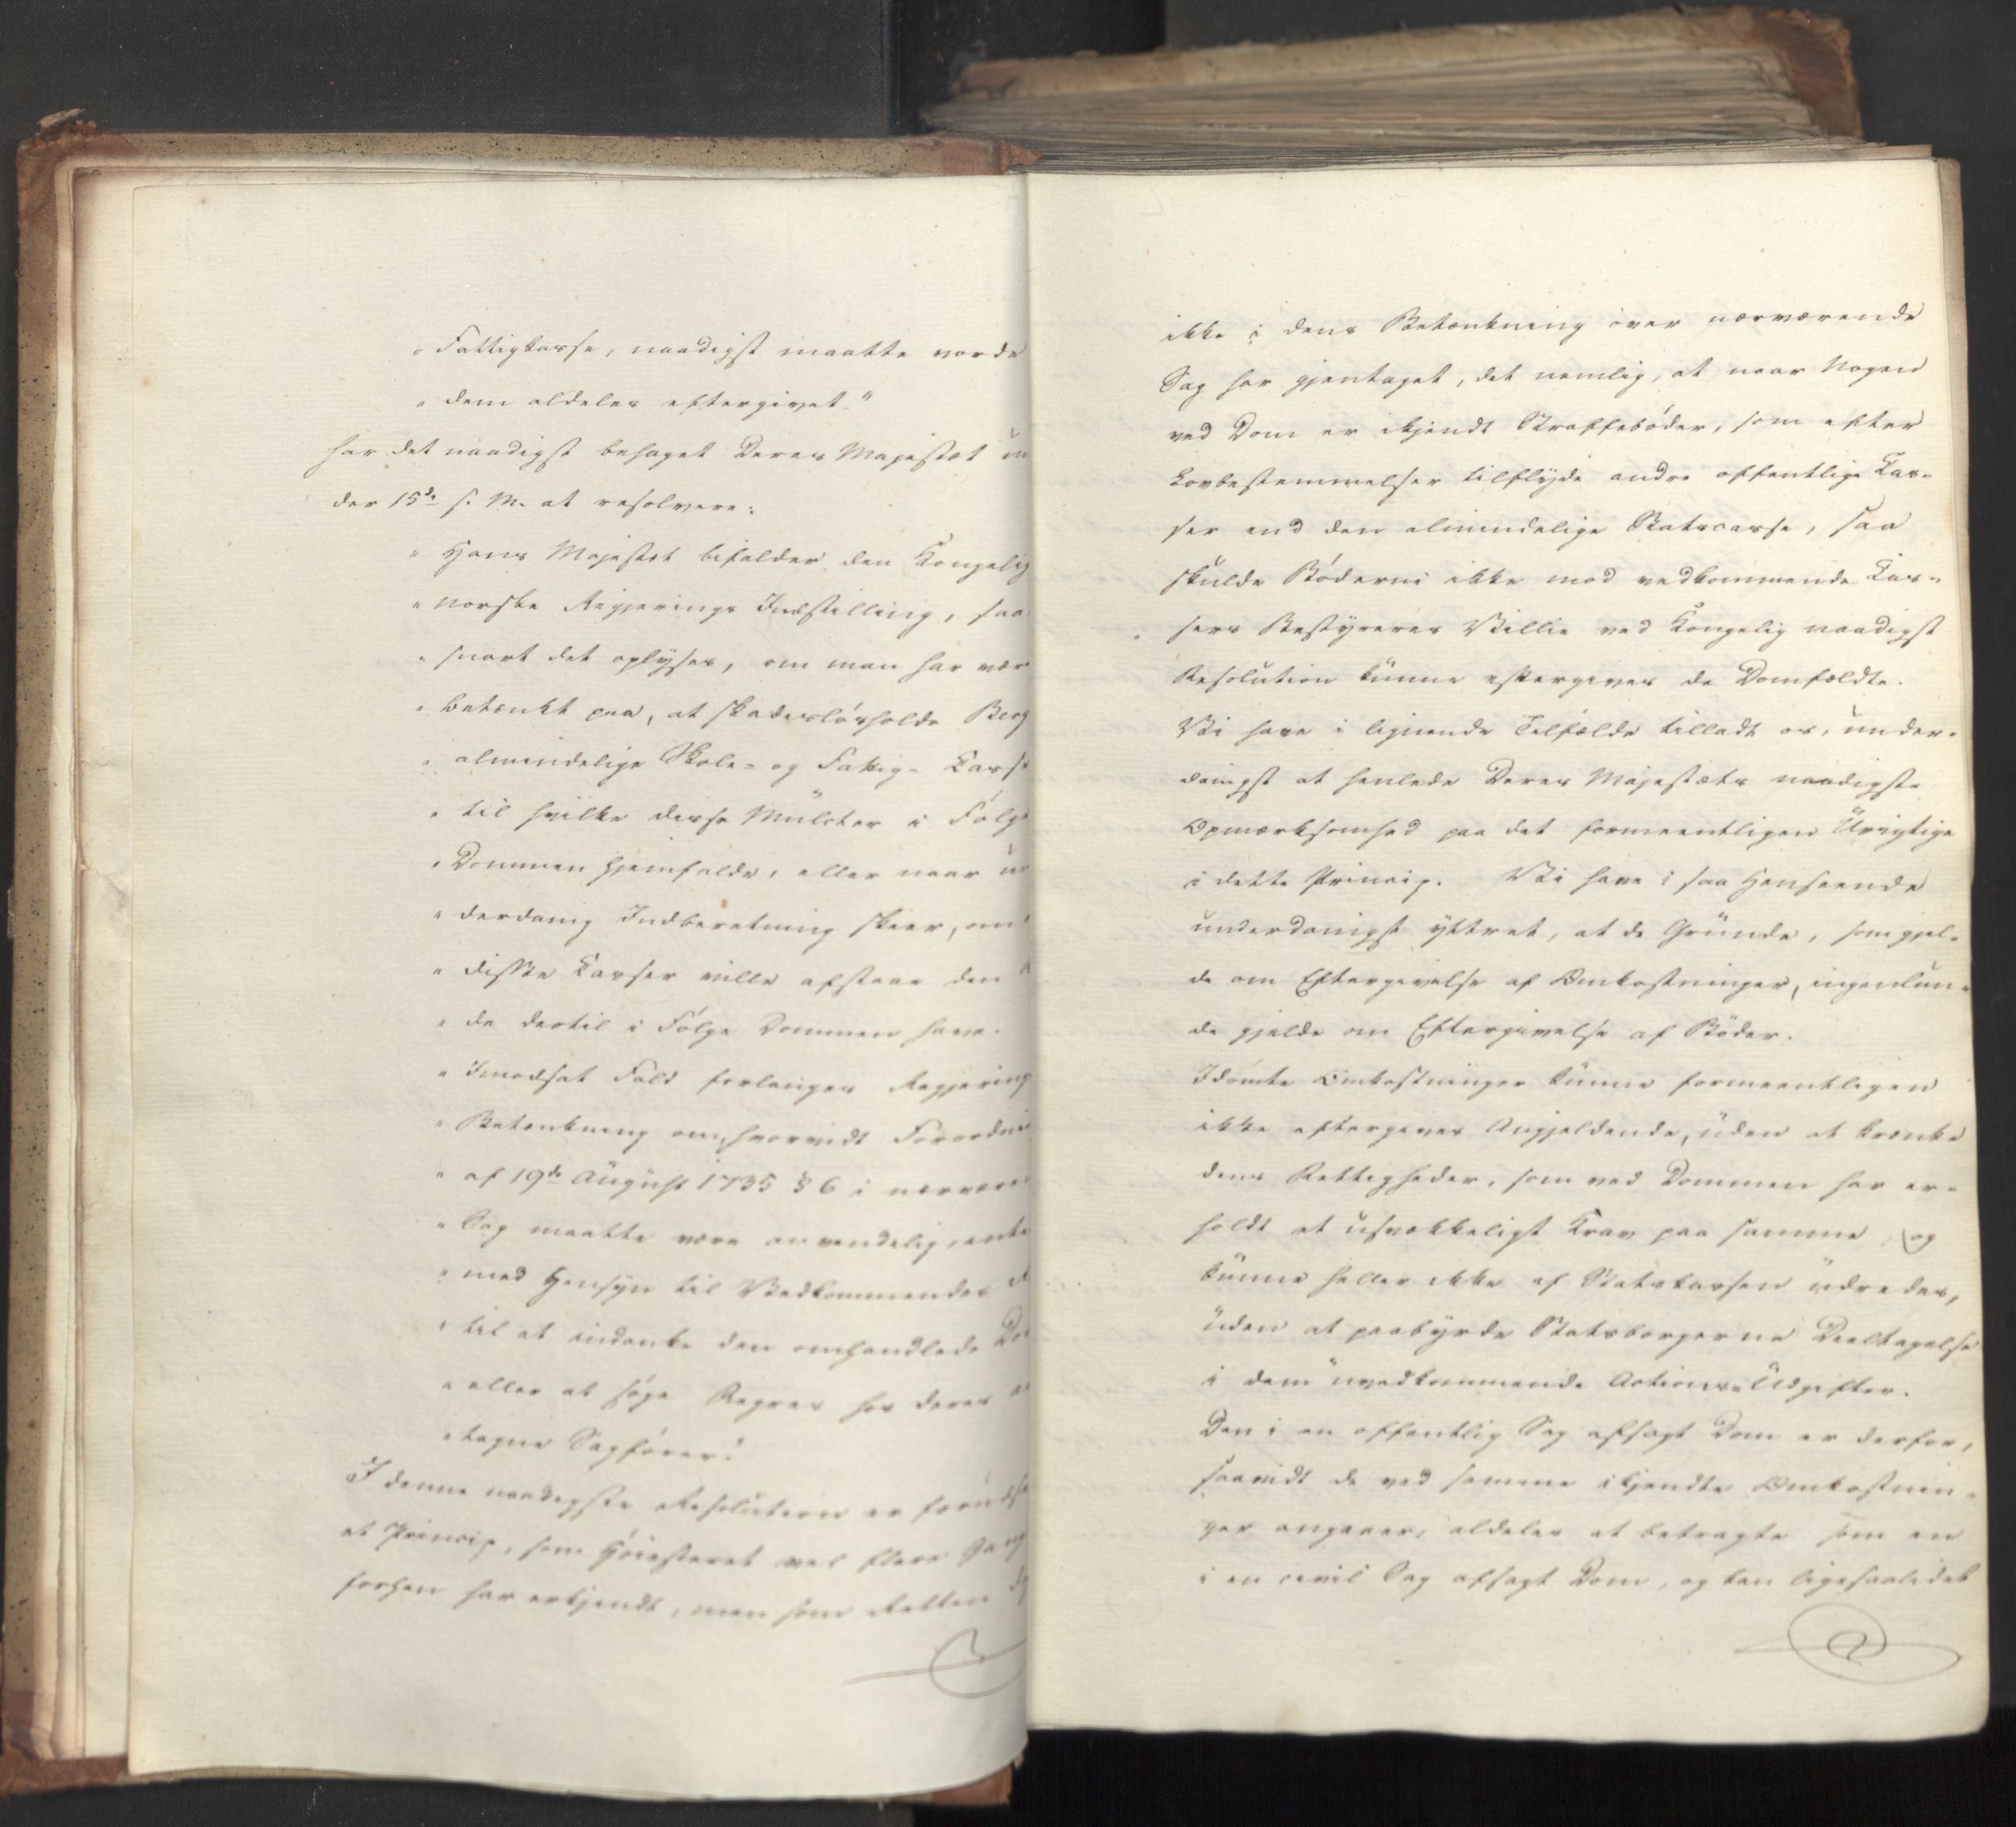 "Fattigkasse, naadigst maatte vorde
"dem aldeles eftergivet."
har det naadigst behaget Deres Majestæt un
der 15de s. M. at resolvere:
"Hans Majestæt bifalder den Kongelig
"norske Regjerings Indstilling, saa
"snart det oplyses, om man har vær
"betænkt paa, at skadesløsholde Berg
"almindelige Skole- og Fattig-Casse
"til hvilke disse Mulcter i Følge
"Dommen hjemfalde, eller naar un
"derdanig Indberetning skeer, om
"disse Casser ville afstaae den
"de dertil i Følge Dommen have.
"I modsat Fald forlanges Regjering
"Betænkning om, hvorvidt Forordni
"af 19de August 1735 § 6 i nærvære
"Sag maatte være anvendelig, ente
"med Hensyn til Vedkommendes
"til at indanke den omhandlede Do
"eller at søge Regres hos deres
"tagne Sagfører."
I denne naadigste Resolution er foruds
et Princip, som Høiesteret vel flere Gang
forhen har erkjendt, men som Retten
ikke i dens Betænkning over nærværende
Sag har gjentaget, det nemlig, at naar Nogen
ved Dom er ikjendt Straffebøder, som efter
Lovbestemmelser tilflyde andre offentlige Cas-
ser end den almindelige Statscasse, saa
skulde Bøderne ikke mod vedkommende Cas-
sers Bestyreres Villie ved Kongelig naadigst
Resolution kunne eftergives de Domfældte.
Vi have i lignende Tilfælde tilladt os, under-
danigst at henlede Deres Majestæts naadigste
Opmærksomhed paa det formeentligen Urigtige
i dette Princip. Vi have i saa Henseende
underdanigst yttret, at de Grunde, som gjel-
de om Eftergivelse af Omkostninger, ingenlun-
de gjelde om Eftergivelse af Bøder.
Idømte Omkostninger kunne formeentligen
ikke eftergives Angjeldende, uden at krænke
dens Rettigheder, som ved Dommen har er-
holdt et usvækkeligt Krav paa samme, og
kunne heller ikke af Statskassen udredes,
uden at paabyrde Statsborgerne Deeltagelse
i dem uvedkommende Actions-Udgifter.
Den i en offentlig Sag afsagt Dom er derfor,
saavidt de ved samme ikjendte Omkostnin-
ger angaaer, aldeles at betragte som en
i en civil Sag afsagt Dom, og kan ligesaalidet